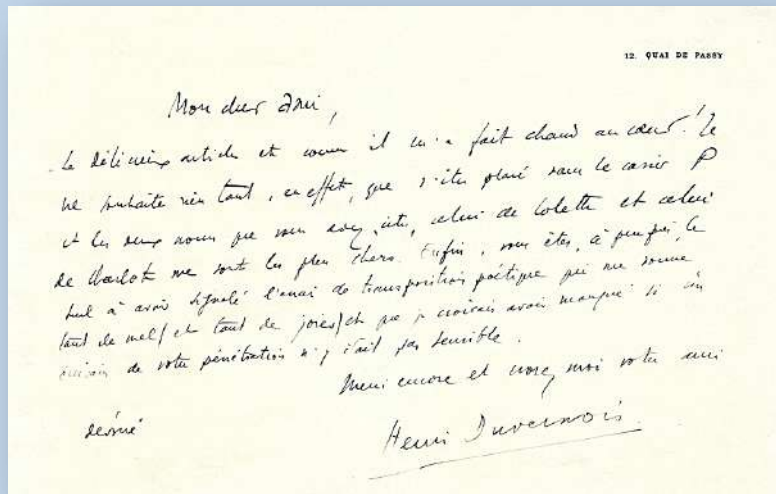 12. QUAI DE PASSY
Mon cher Ami,
Le délicieux article et comme il m'a fait chaud au cœur! Je
ne souhaite rien tant, en effet, que d'être placé sous le casier P
et les deux noms que vous avez cités, celui de Colette et celui
de Charlot me sont les plus chers. Enfin, vous êtes, à peu près, le
seul à avoir signalé l'essai de transposition poétique qui me donne
tant de mal (et tant de joies) et que je croirais avoir manqué si un
de votre pénétration n'y était pas sensible.
Merci encore et croyez moi votre ami
dévoué
Henri Duvernois